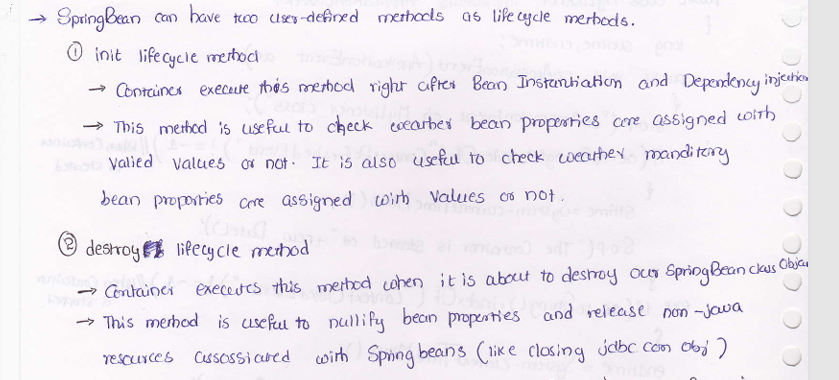 → SpringBean can have two user-defined methods as life cycle methods.
① init lifecycle method
→ Container execute this method right after Bean Instantiation and Dependency injection
→ This method is useful to check weather bean properties are assigned with
Valied Values or not. It is also useful to check weather manditory
bean properties are assigned with Values or not.
② destroy lifecycle method
→ Container executes this method when it is about to destroy our SpringBean class Object
→ This method is useful to nullify bean properties and release non-java
resources assossiated with Spring beans (like closing jdbc con obj)